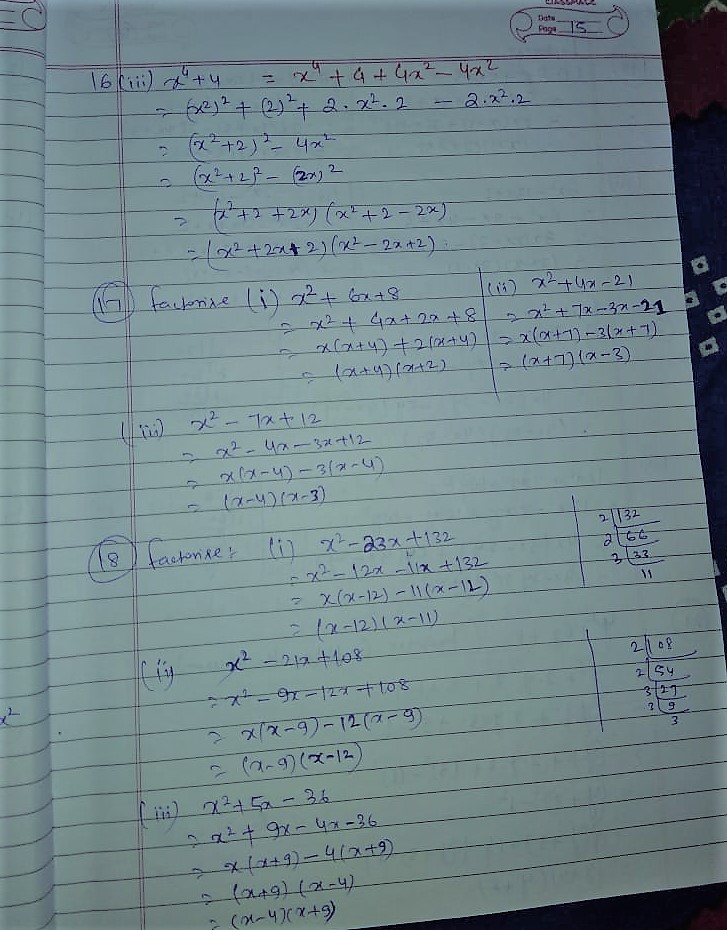 CLASSMATE
Date
Page 15
16 (iii) x⁴+4 = x⁴ + 4 + 4x² - 4x²
= (x2)² + (2)² + 2 . x² . 2 - 2.x².2
= (x²+2)² - 4x²
= (x²+2)² - (2x)²
= (x²+2+2x) (x²+2-2x)
= (x²+2x+2)(x²-2x+2).
17 factorise (i) x² + 6x+8
= x² + 4x+2x+8
= x(x+4) + 2(x+4)
= (x+4)(x+2)
(ii) x²+4x-21
= x²+7x-3x-21
= x(x+7)-3(x+7)
= (x+7)(x-3)
(iii) x² - 7x+12
= x² - 4x-3x+12
= x(x-4) - 3(x-4)
= (x-4)(x-3)
18 factorise: (i) x²-23x+132
= x²-12x-11x+132
= x(x-12)-11(x-12)
= (x-12)(x-11)
2 132
2 66
3 33
11
(ii) x² -21x+108
= x² - 9x-12x+108
= x(x-9)-12(x-9)
= (x-9)(x-12)
2 108
2 54
3 27
3 9
3
(iii) x²+5x-36
= x² + 9x-4x-36
= x(x+9)-4(x+9)
= (x+9) (x-4)
= (x-4)(x+9)
x²